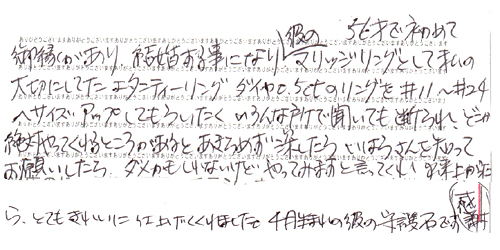 級の 56才で初めて
御縁があり 結婚する事になり マリッジリングとして私の
大切にしてた エタニティーリング ダイヤ0.5ctのリングを #11〜#24
へサイズアップしてもらいたく いろんな所で聞いても 断られ、どこか
絶対やってくれるところがあると あきらめず探したら いはらさんを知って
お願いしたら ダメかもしれないけど やってみますと言ってくれ
ら、とてもきれいに仕上がってくりました 4月生まれの級の守護石です 感謝